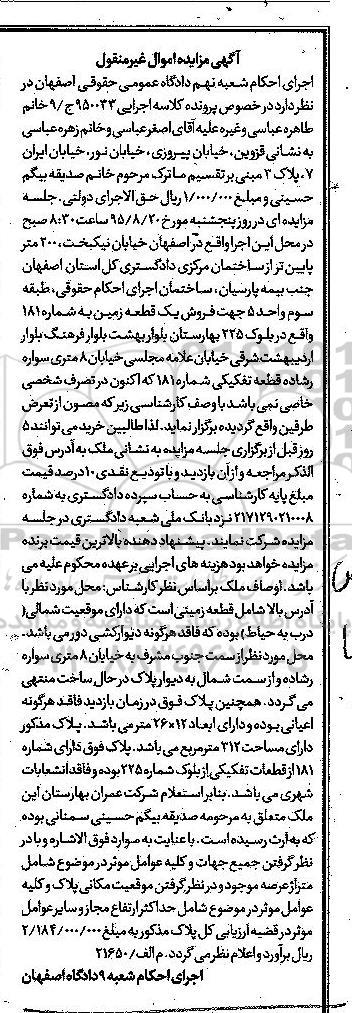 آگهی مزایده اموال غیرمنقول
اجرای احکام شعبه نهم دادگاه عمومی حقوقی اصفهان در
نظر دارد در خصوص پرونده کلاسه اجرایی ۹۵۰۰۳۳ج/۹ خانم
طاهره عباسی و غیره علیه آقای اصغر عباسی و خانم زهره عباسی
به نشانی قزوین، خیابان پیروزی، خیابان نور، خیابان ایران
۷، پلاک ۳ مبنی بر تقسیم ماترک مرحوم خانم صدیقه بیگم
حسینی و مبلغ ۱/۰۰۰/۰۰۰ ریال حق الاجرای دولتی. جلسه
مزایده ای در روز پنجشنبه مورخ ۹۵/۸/۲۰ ساعت ۸:۳۰ صبح
در محل این اجرا واقع در اصفهان خیابان نیکبخت، ۲۰۰ متر
پایین تر از ساختمان مرکزی دادگستری کل استان اصفهان
جنب بیمه پارسیان، ساختمان اجرای احکام حقوقی، طبقه
سوم واحد ۵ جهت فروش یک قطعه زمین به شماره ۱۸۱
واقع در بلوک ۲۲۵ بهارستان بلوار بهشت بلوار فرهنگ بلوار
اردیبهشت شرقی خیابان علامه مجلسی خیابان ۸ متری سواره
رشاده قطعه تفکیکی شماره ۱۸۱ که اکنون در تصرف شخصی
خاصی نمی باشد با وصف کارشناسی زیر که مصون از تعرض
طرفین واقع گردیده برگزار نماید. لذا طالبین خرید می توانند ۵
روز قبل از برگزاری جلسه مزایده به نشانی ملک به آدرس فوق
الذکر مراجعه و از آن بازدید و با تودیع نقدی ۱۰ درصد قیمت
مبلغ پایه کارشناسی به حساب سپرده دادگستری به شماره
۲۱۷۱۲۹۰۲۱۰۰۰۸ نزد بانک ملی شعبه دادگستری در جلسه
مزایده شرکت نمایند. پیشنهاد دهنده بالاترین قیمت برنده
مزایده خواهد بود هزینه های اجرایی بر عهده محکوم علیه می
باشد. اوصاف ملک براساس نظر کارشناس: محل مورد نظر با
آدرس بالا شامل قطعه زمینی است که دارای موقعیت شمالی(
درب به حیاط) بوده که فاقد هرگونه دیوارکشی دور می باشد.
محل مورد نظر از سمت جنوب مشرف به خیابان ۸ متری سواره
رشاده و از سمت شمال به دیوار پلاک در حال ساخت منتهی
می گردد. همچنین پلاک فوق در زمان بازدید فاقد هرگونه
اعیانی بوده و دارای ابعاد ۱۲×۲۶ متر می باشد. پلاک مذکور
دارای مساحت ۳۱۲ مترمربع می باشد. پلاک فوق دارای شماره
۱۸۱ از قطعات تفکیکی از بلوک شماره ۲۲۵ بوده و فاقد انشعابات
شهری می باشد. بنابر استعلام شرکت عمران بهارستان این
ملک متعلق به مرحومه صدیقه بیگم حسینی سمنانی بوده
که به ارث رسیده است. با عنایت به موارد فوق الاشاره و با در
نظر گرفتن جمیع جهات و کلیه عوامل موثر در موضوع شامل
متراژ عرصه موجود و در نظر گرفتن موقعیت مکانی پلاک و کلیه
عوامل موثر در موضوع شامل حداکثر ارتفاع مجاز و سایر عوامل
موثر در قضیه ارزیابی کل پلاک مذکور به مبلغ ۲/۱۸۴/۰۰۰/۰۰۰
ریال برآورد و اعلام نظر می گردد. م الف/۲۱۶۵۰
اجرای احکام شعبه ۹ دادگاه اصفهان